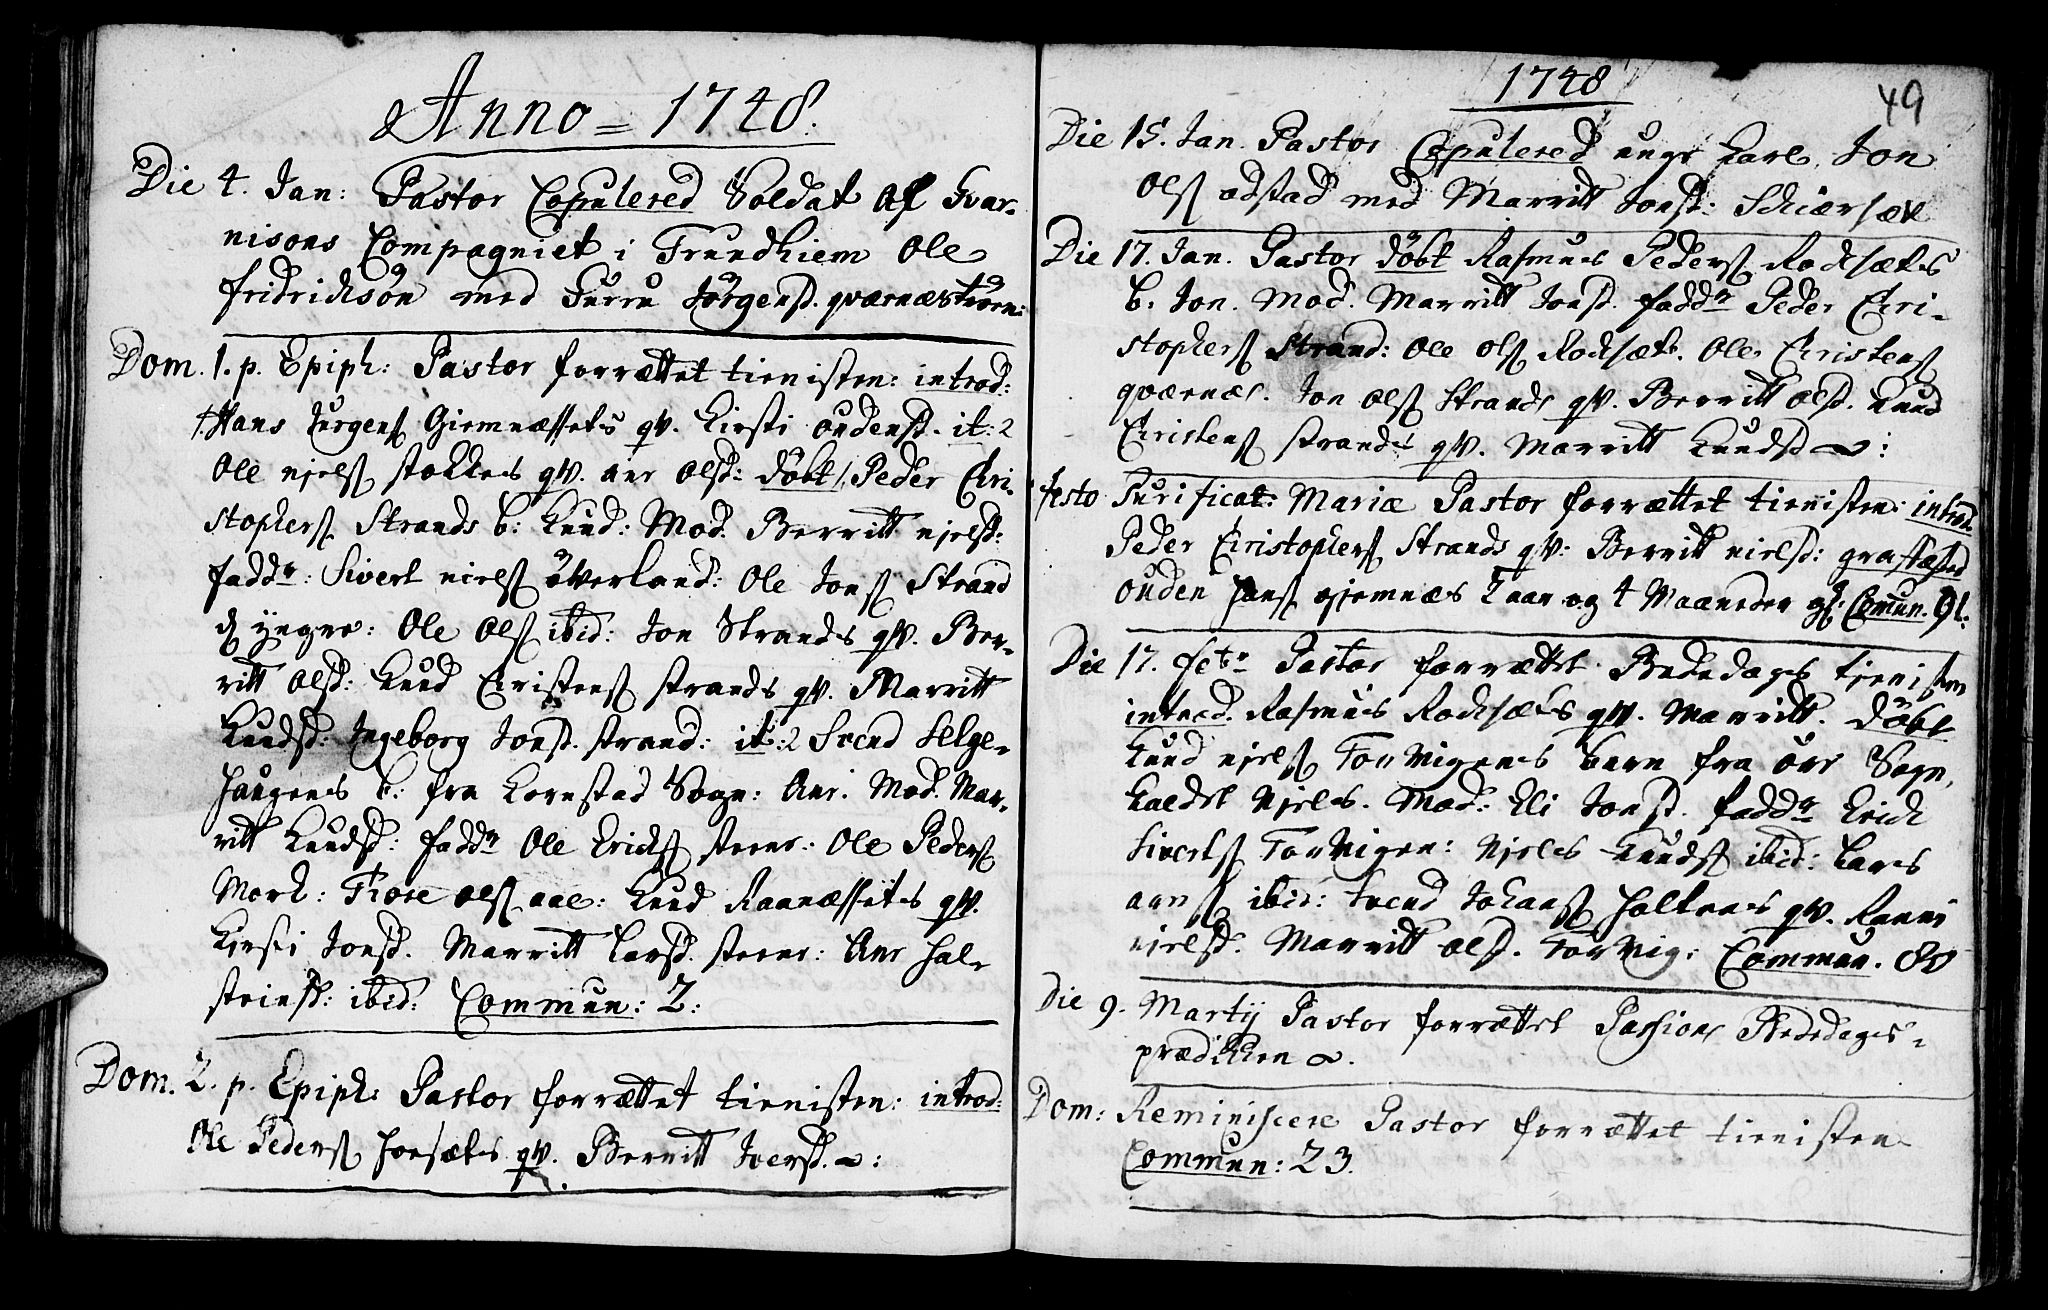 Anno = 1748.
Die 4. Jan: Pastor Copulered Soldat af Gvar-
nisons Compagniet i Trundhiem Ole
fridrichsön med Jörgensd. qværnæström:
Dom. 1. p. Epiph: Pastor forrættet tienisten: introd:
Hans Jurgens Giemnæssets qv. Kirsti oudensd. it: 2
Ole njels stokkes qv. ane olsd: döbt Peder Chri-
stophers Strands b: Knud: Mod. Berritt njelsd:
fadd: Sivert niels överland: Ole Jons Strand
d yngre: Ole Ols ibid: Jon Strands qv. Ber-
ritt olsd: Knud Christens strands qv. Marritt
Knudsd: Ingeborg Jonsd. strand: it: 2 Svend Helge-
haugens b: fra Kornstad Sogn: Ane. Mod. Mar-
ritt Knudsd: fadd Ole Erichs steene: Ole Peders
Mork: Thore ols aae: Knud Raanæssets qv.
Kirsti Jonsd. Marritt Larsd. steene: Ane Hal-
steinsd: ibid: Commun: 2:
Dom. 2. p. Epiph: Pastor forrættet tienisten: introd:
Ole Peders Horsæts qv. Berritt Iversd.
1748
49
Die 15. Jan. Pastor Copulered unge Karl, Jon
Ols odstad med Marritt Jonsd: Schiærsæt
Die 17. Jan. Pastor döbt Rasmus Peders Rochsæts
b: Jon. Mod. Marritt Jonsd. fadd Peder Chri-
stophers Strand: Ole ols Rochsæt. Ole Christens
qværnæs. Jon ols Strands qv. Berritt olsd. Knud
Christens strands qv. Marritt Knudsd:
festo Purificat: Mariæ Pastor forrættet tienisten: introd.
Peder Christophers Strands qv: Berritt nielsd:
ouden Hans gjemnæs aar og 4 Maaneder gl: Commun. 91:
Die 17. febr Pastor forrættet Bededags tjenisten
introd. Rasmus Rochsæts qv. Marritt. Döbt
Knud njels Torvigens barn fra öre Sogn,
kaldet Njels. Mod: Eli Jonsd. fadd Erich
Siverts Torvigen: Njels Knuds ibid: Lars
ibid: Svend Johans Holtens qv. Ranni
njelsd. Marritt olsd. Torvig: Commun. 80
Die 9. Martij Pastor forrættet Passions Bededags-
prædikken.
Dom: Reminiscere Pastor forrættet tienisten
Commun: 23.